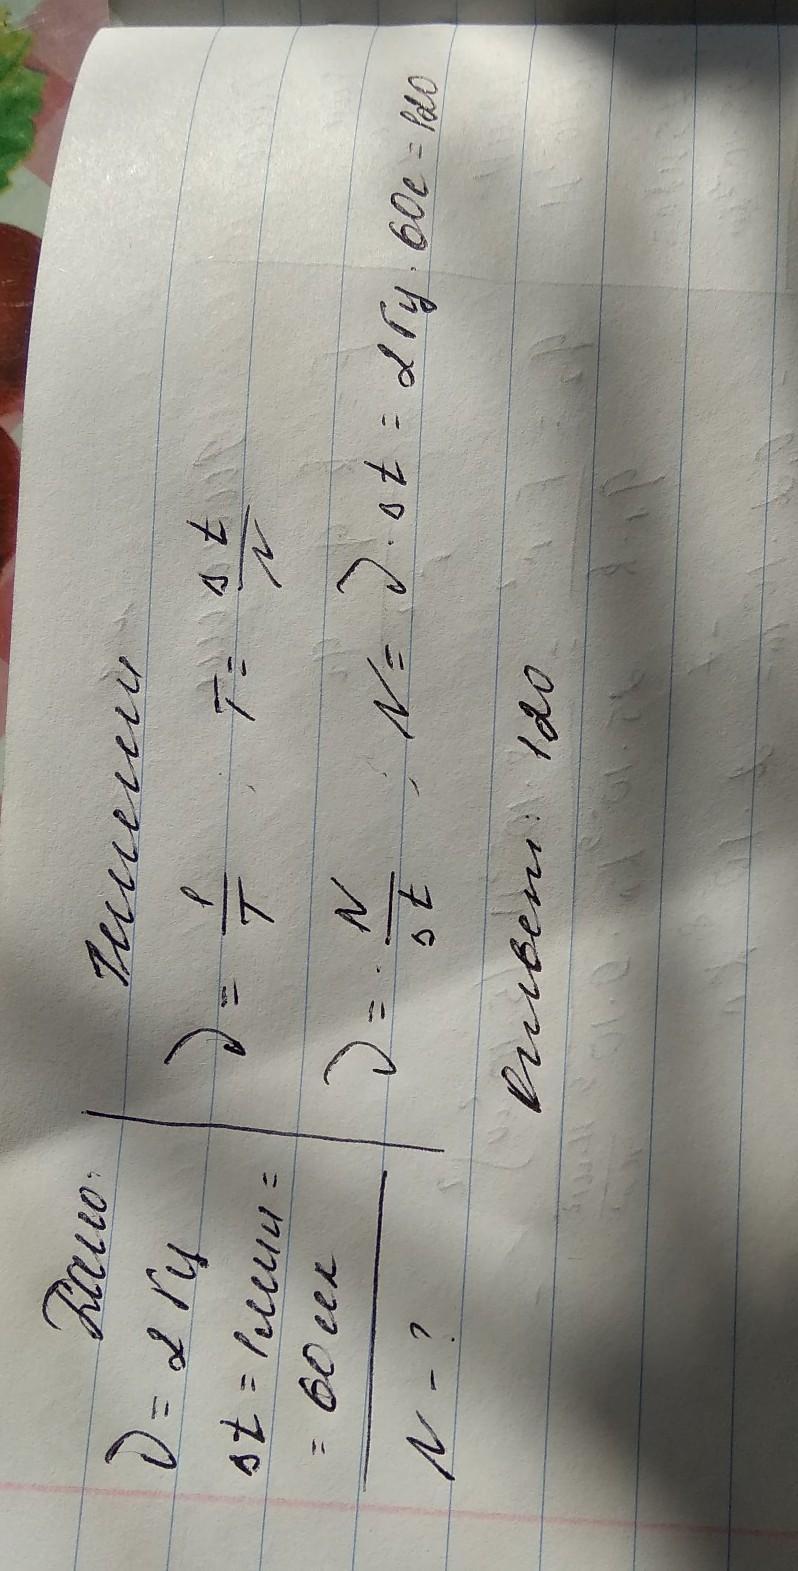 Дано:
ν = 2 Гц
Δt = 1 мин =
= 60 сек
N - ?
Решение
ν = 1/T , T = Δt/N
ν = N/Δt , N = ν · Δt = 2 Гц · 60 с = 120
Ответ: 120